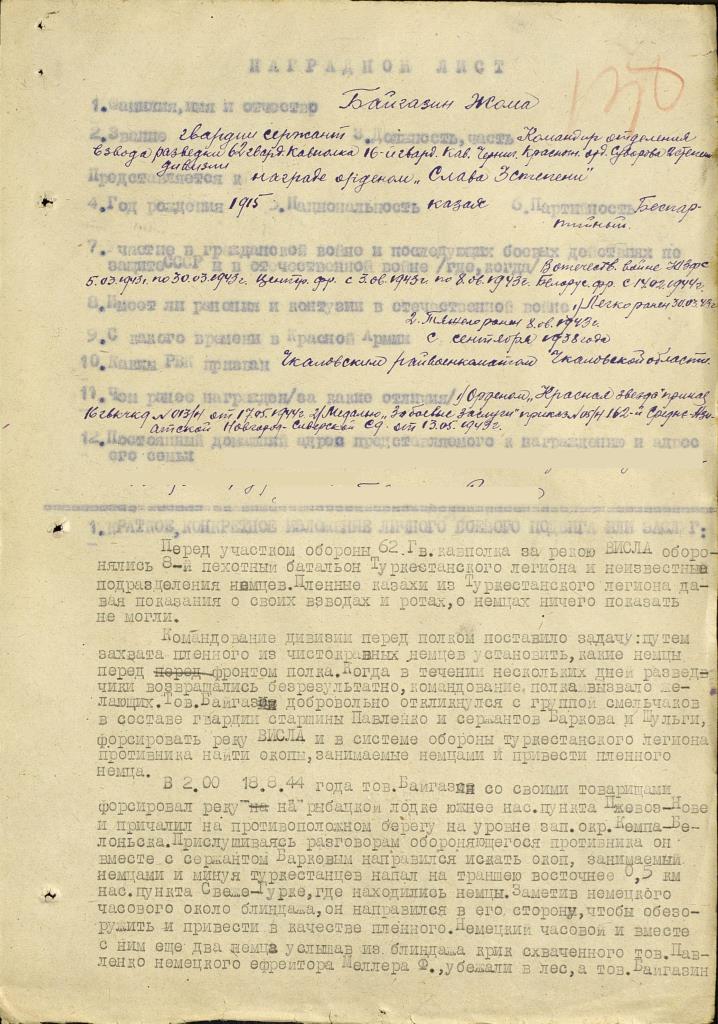 НАГРАДНОЙ ЛИСТ
130
1. Фамилия, имя и отчество Байгазин Жома
2. Звание гвардии сержант 3. Должность, часть Командир отделения
взвода разведки 62 гвард. Кавполка 16-й гвард. Кав. Черниг. Краснозн. орд. Суворова 2 степени
дивизии
Представляется к награде орденом „Слава 3 степени"
4. Год рождения 1915 5. Национальность казах 6. Партийность Беспар-
тийный.
7. Участие в гражданской войне и последующих боевых действиях по
защите СССР и в отечественной войне /где, когда/ В отечеств. войне Ю.З.ф. с
5.03.1943г. по 30.03.1943г. Центр. фр. с 3.06.1943г. по 8.06.1943г. Белорус. фр. с 17.02.1944г.
8. Имеет ли ранения и контузии в отечественной войне 1/ Легко ранен 30.03.43г.
2. Тяжело ранен 8.06.1943г.
9. С какого времени в Красной Армии с сентября 1938 года
10. Каким РВК призван Чкаловским райвоенкоматом Чкаловской области.
11. Чем ранее награжден /за какие отличия/ 1/ Орденом „Красная звезда" приказ
16 гвкчкд № 013/н от 17.05.1944г. 2/ Медалью „За боевые заслуги" приказ № 05/н 162-й Средне-Ази-
атской Новгород-Северской СД. от 13.05.1943г.
12. Постоянный домашний адрес представляемого к награждению и адрес
его семьи
1. КРАТКОЕ, КОНКРЕТНОЕ ИЗЛОЖЕНИЕ ЛИЧНОГО БОЕВОГО ПОДВИГА ИЛИ ЗАСЛУГ:
Перед участком обороны 62 Гв. кавполка за рекою ВИСЛА оборо-
нялись 8-й пехотный батальон Туркестанского легиона и неизвестные
подразделения немцев. Пленные казахи из Туркестанского легиона да-
вая показания о своих взводах и ротах, о немцах ничего показать
не могли.
Командование дивизии перед полком поставило задачу: путем
захвата пленного из чистокравных немцев установить, какие немцы
перед перед фронтом полка. Когда в течении нескольких дней развед-
чики возвращались безрезультатно, командование полка вызвало же-
лающих. Тов. Байгазин добровольно откликнулся с группой смельчаков
в составе гвардии старшины Павленко и сержантов Баркова и Цульги,
форсировать реку ВИСЛА и в системе обороны туркестанского легиона
противника найти окопы, занимаемые немцами и привести пленного
немца.
В 2.00 18.8.44 года тов. Байгазин со своими товарищами
форсировал реку на на рыбацкой лодке южнее нас. пункта Пжевоз-Нове
и причалил на противоположном берегу на уровне зап. окр. Кемпа-Бе-
лоньска. Прислушиваясь разговорам обороняющегося противника он
вместе с сержантом Барковым направился искать окоп, занимаемый
немцами и минуя туркестанцев напал на траншею восточнее 0,5 км
нас. пункта Свеже-Гурке, где находились немцы. Заметив немецкого
часового около блиндажа, он направился в его сторону, чтобы обезо-
ружить и привести в качестве пленного. Немецкий часовой и вместе
с ним еще два немца услышав из блиндажа крик схваченного тов. Пав-
ленко немецкого ефрейтора Меллера Ф., убежали в лес, а тов. Байгазин